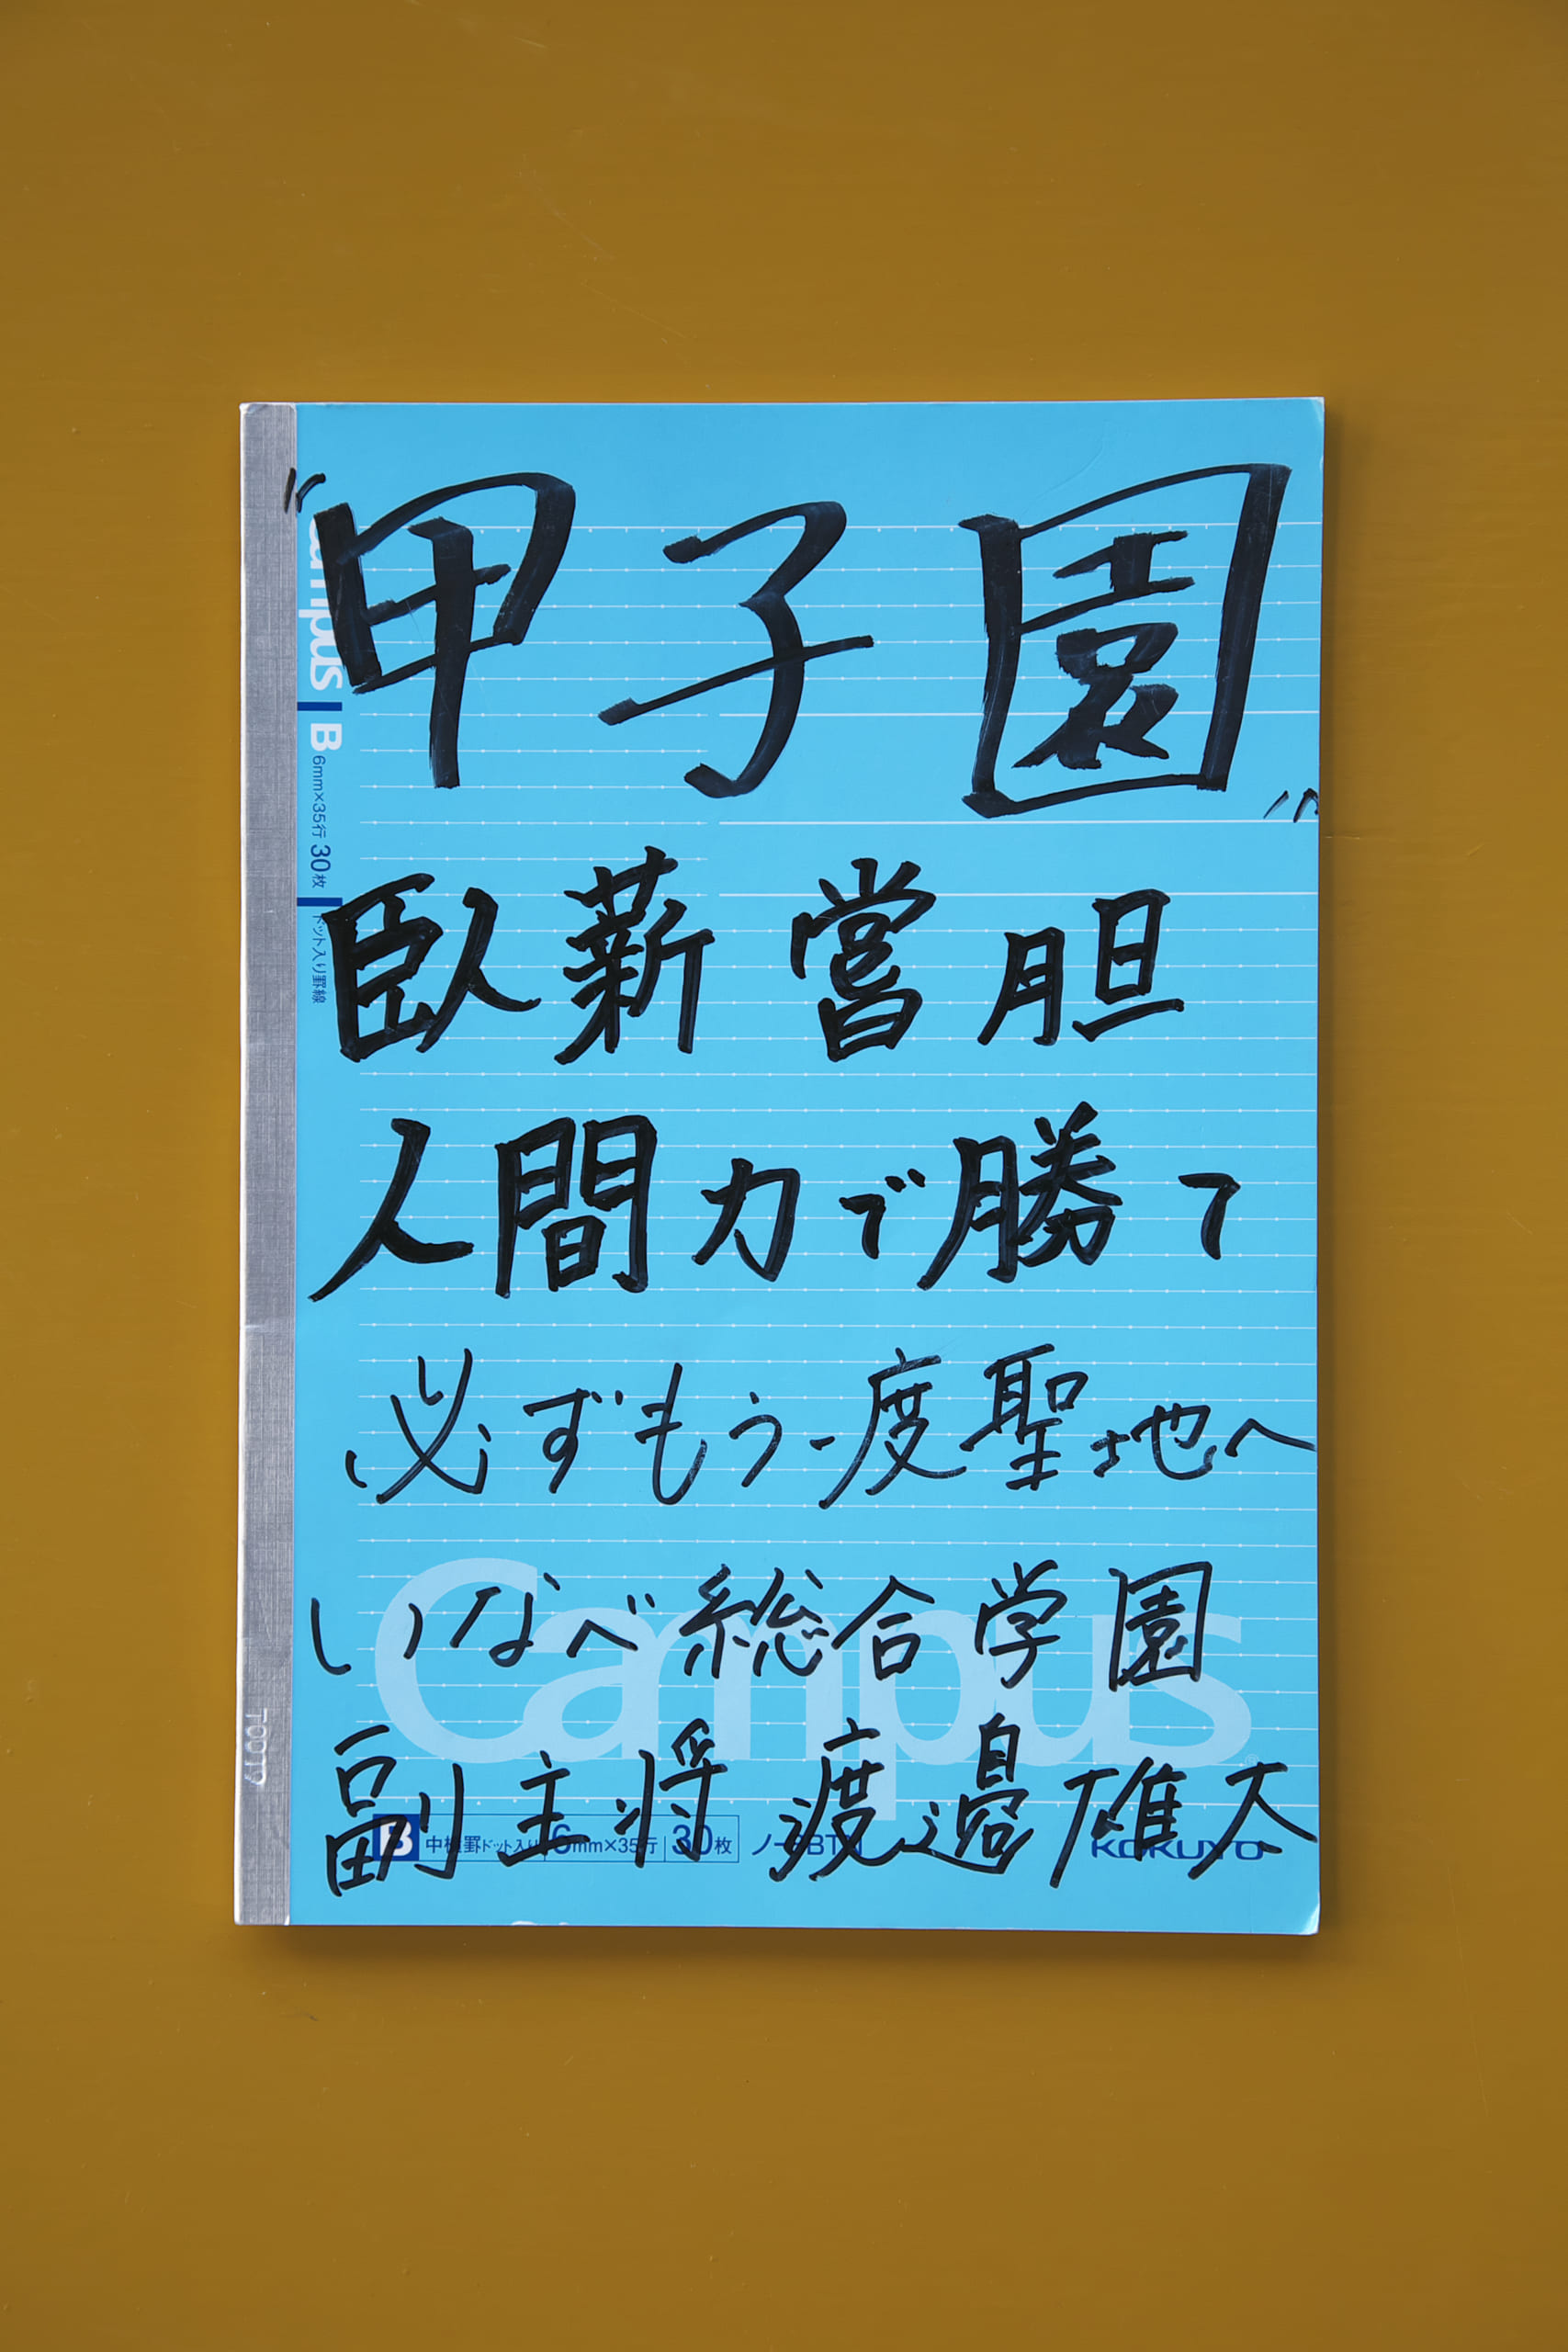 "甲子園"
臥薪嘗胆
人間力で勝て
必ずもう一度聖地へ
いなべ総合学園
副主将 渡邉雄太
Campus
B 中横罫ドット入り 6mm×35行 30枚
KOKUYO
Campus B 6mm×35行 30枚 ドット入り罫線